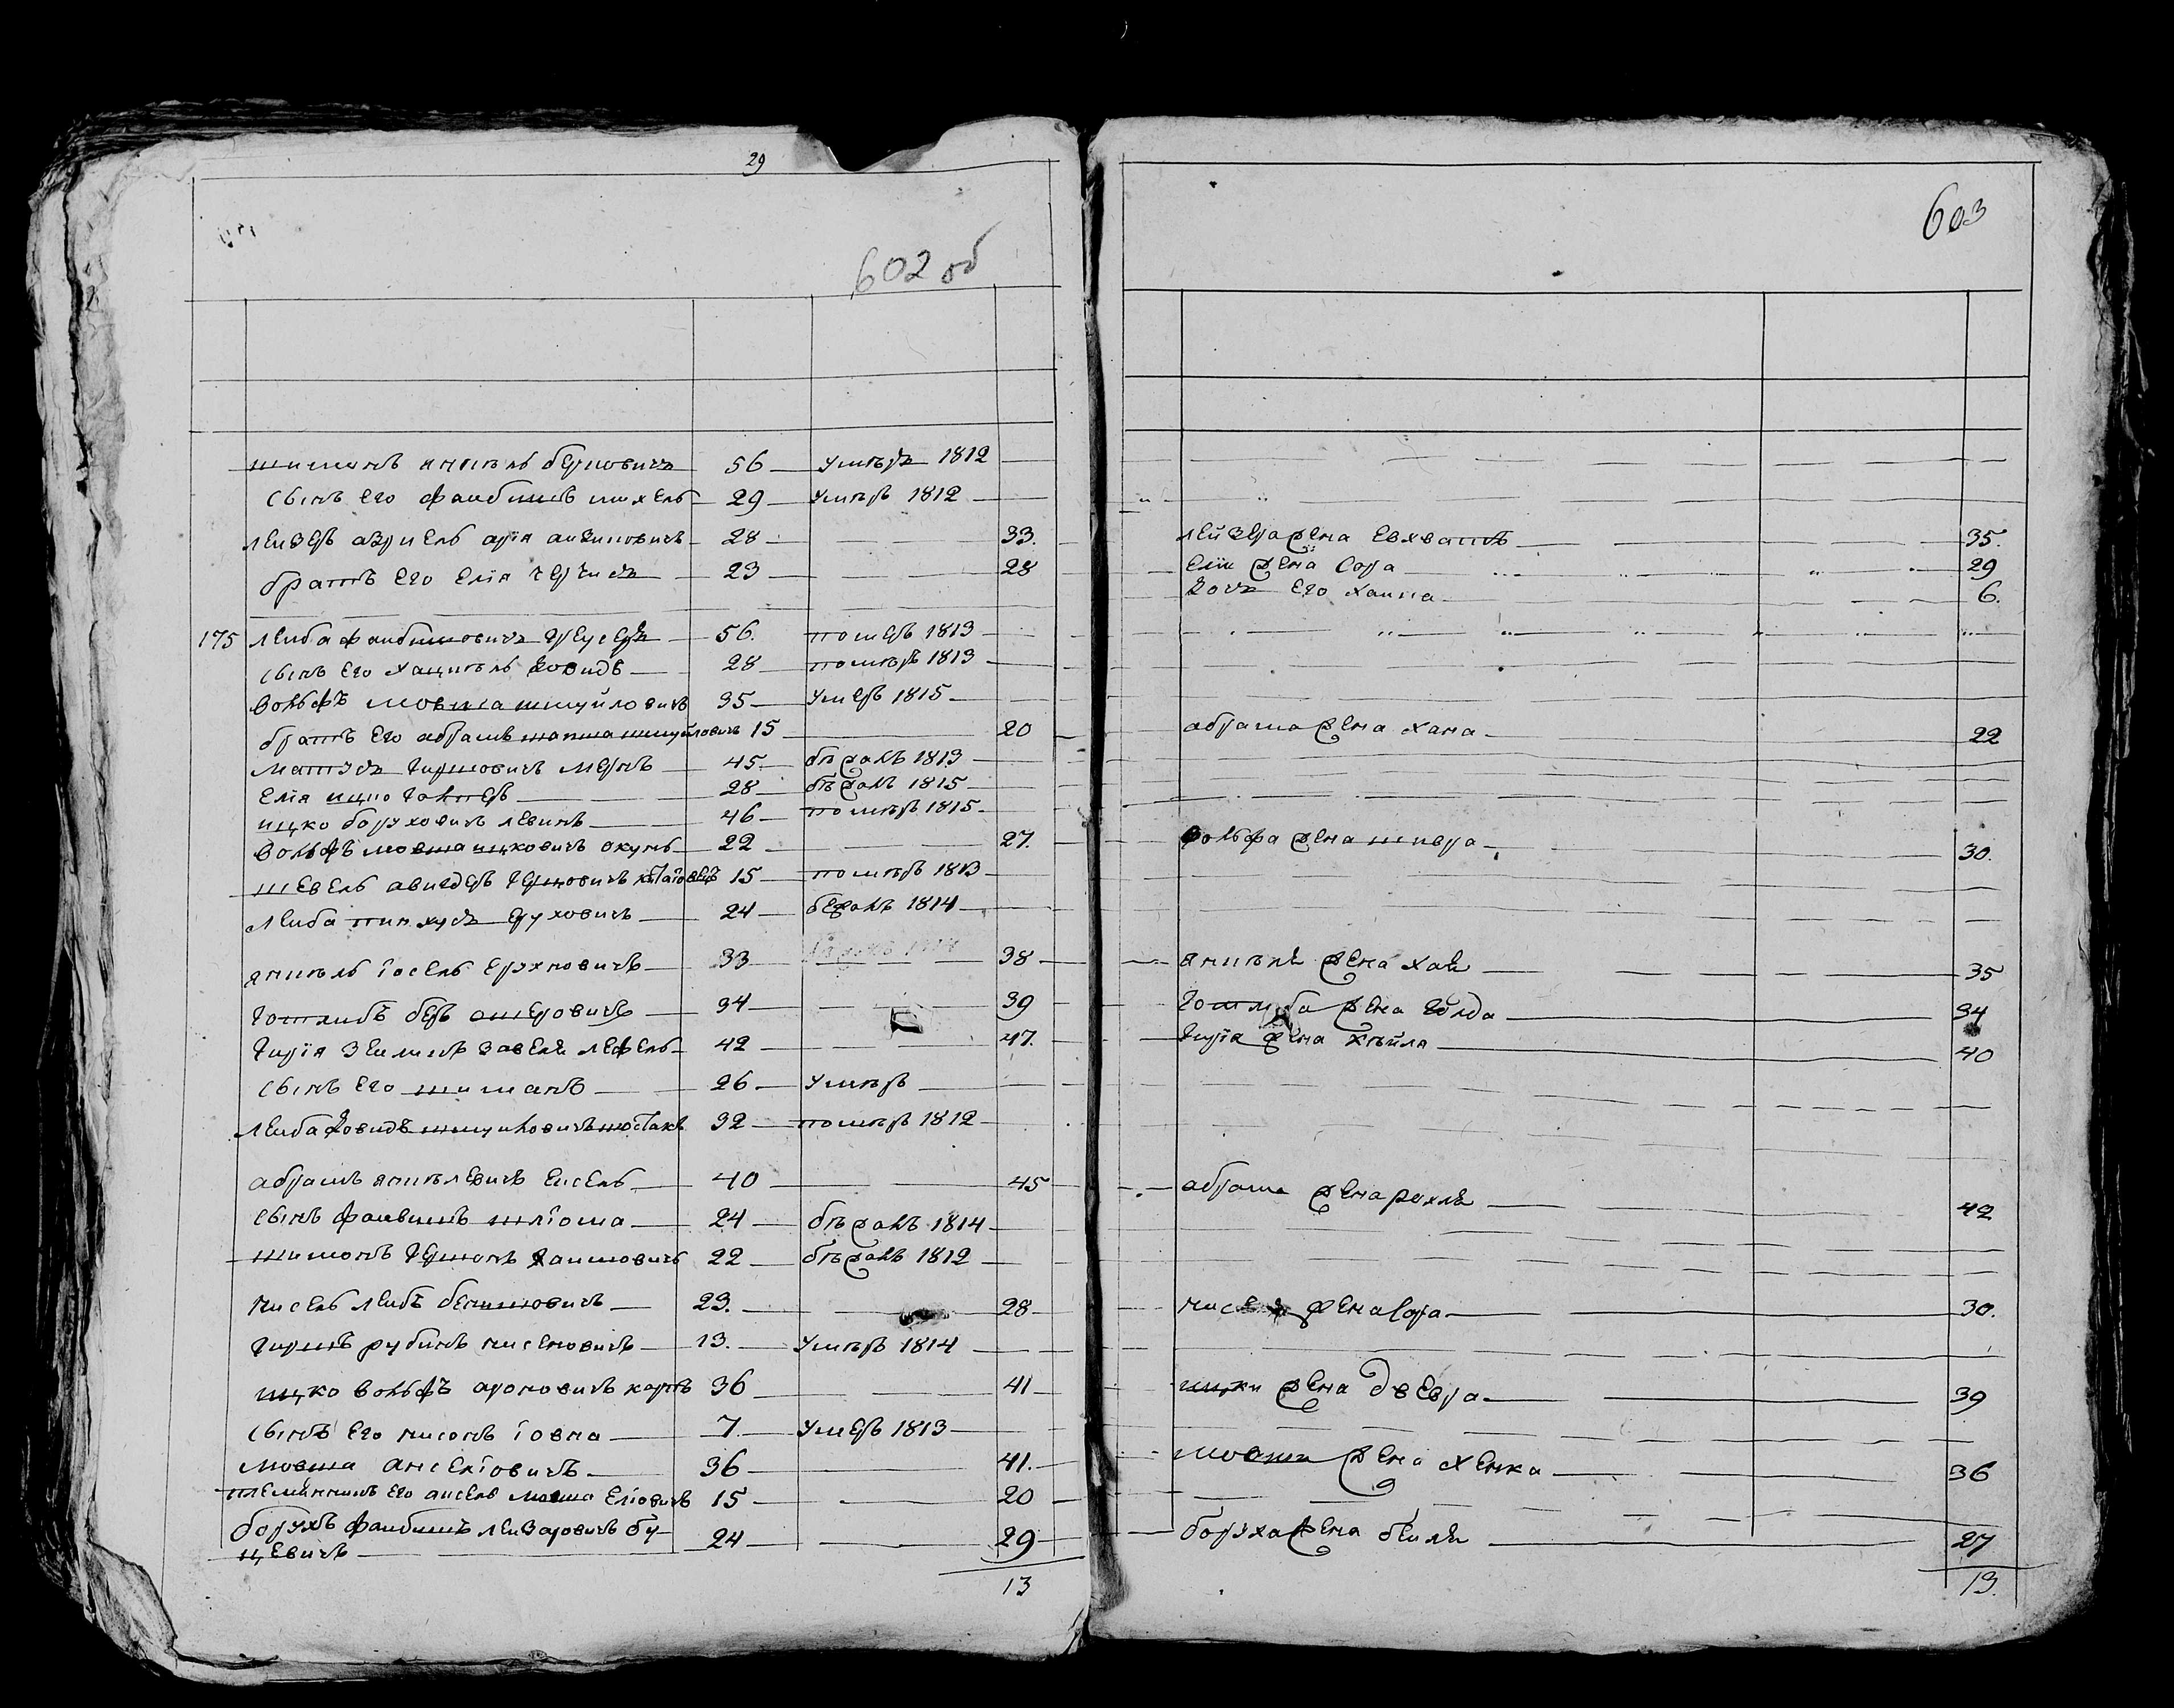 29
602 об
шимонъ янкель берковичъ 56 умеръ 1812
сынъ его файбишъ михель 29 умеръ 1812
лейзеръ азриель арiя айзиковичъ 28 33.
братъ его елiя 23 28
175 лейба файбишовичъ 56. померъ 1813
сынъ его хацкель довидъ 28 померъ 1813
вольфъ мовша шмуйловичъ 35 умеръ 1815
братъ его абрамъ шапша шмуйловичъ 15 20
матусъ гиршовичъ 45. бежалъ 1813
елiя ицко 28 бежалъ 1815
ицко боруховичъ левинъ 46 померъ 1815
вольфъ мовша ицковичъ окунь 22 27.
шевель авигдеръ 15 померъ 1813
лейба пинхусъ 24 бежалъ 1814
янкель iосель 33 38
готлибъ беръ ошеровичъ 34 39
гирiя зелигъ 42 47.
сынъ его шиманъ 26 умеръ
лейба довидъ шмуйловичъ шостакъ 32 померъ 1812
абрамъ янкелевичъ 40 45
сынъ файвишъ шлiома 24 бежалъ 1814
шимонъ гершонъ хаимовичъ 22 бежалъ 1812
нисель лейбъ 23. 28
гиршъ рубинъ нисеновичъ 13. умеръ 1814
ицко вольфъ ароновичъ 36 41
сынъ его нисонъ iовна 7. умеръ 1813
мовша анселiовичъ 36 41.
племянникъ его ансель мовша елiовичъ 15 20
борухъ файбишъ лейзаровичъ бу-
цевичъ 24 29
13
603
лейзера жена 35.
елiи жена сора 29
дочь его ханна 6.
абрама жена хана 22
вольфа жена шифра 30.
янкеля жена хая 35
готлиба жена голда 34
гирiя жена хейля 40
абрама жена рохля 42
ниселя жена сора 30.
ицки жена двевра 39
мовши жена хенка 36
боруха жена бейля 27
13.